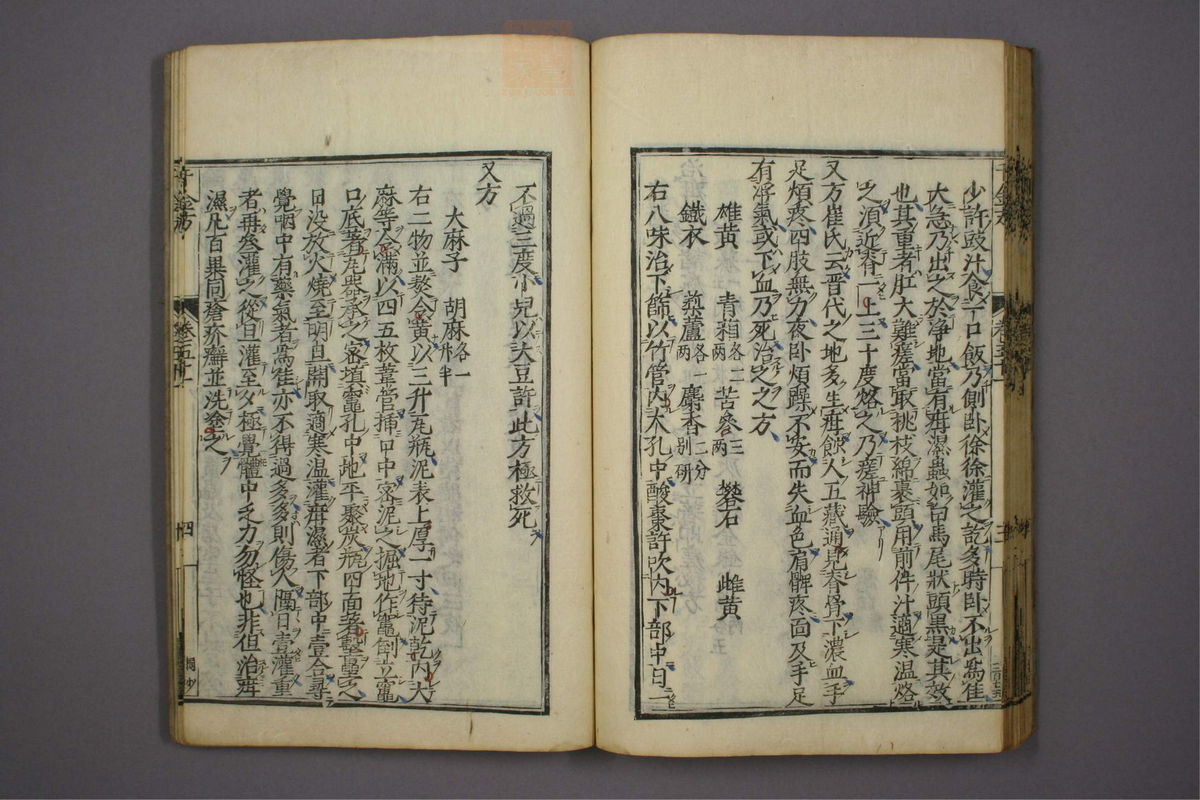 少許豉汁食一口飯乃側臥徐徐灌之訖多時臥不出為佳
大急乃出之於淨地當有疳濕蟲如馬尾狀頭黑是其效
也其重者肛大難瘥當取桃枝綿裹頭用前件汁適寒溫烙
之須近脊一上三十度烙之乃瘥神驗
又方崔氏云晉代之地多生疳飲人五藏通見脊骨下濃血手
足煩疼四肢無力夜臥煩躁不安而失血色肩髀疼面及手足
有浮氣或下血乃死治之之方
雄黃 青葙各二兩 苦參三兩 礬石 雌黃
鐵衣 藜蘆各一兩 麝香二分別研
右八味治下篩以竹管內大孔中酸棗許吹內下部中日一
不過三度小兒以大豆許此方極救死
又方
大麻子 胡麻各一升半
右二物並熬令黃以三升瓦瓶泥表上厚一寸待泥乾內大
麻等令滿以四五枚葦管插口中密泥之掘地作竈倒立竈
口底著瓦器承之密填竈孔中地平聚炭瓶四面著墼壘之
日沒放火燒至明旦開取適寒溫灌疳濕者下部中壹合尋
覺咽中有藥氣者為佳亦不得過多多則傷人隔日壹灌重
者再叁灌之從旦灌至夕極覺體中乏力勿怪也非但治疳
濕凡百異同瘡疥癬並洗塗之
千金方 卷五十一
四